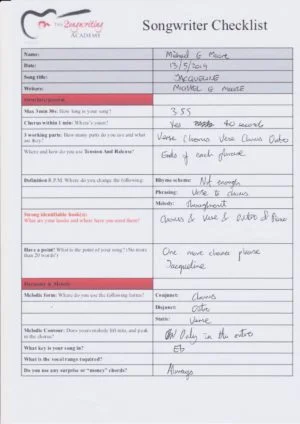 THE Songwriting
ACADEMY
Songwriter Checklist
Name: Michael G Moore
Date: 13/5/2019
Song title: JACQUELINE
Writers: MICHAEL G MOORE
Structure/system
Max 3min 30s: How long is your song? 3.55
Chorus within 1 min: Where's yours? Yes 40 seconds
3 working parts: How many parts do you use and what are they? Verse Chorus Verse Chorus Outro
Where and how do you use Tension And Release? Ends of each phrase
Definition R.P.M. Where do you change the following:
Rhyme scheme: Not enough
Phrasing: Verse to chorus
Melody: throughout
Strong identifiable hook(s):
What are your hooks and where have you used them? Chorus & Verse & Outro &
Have a point? What is the point of your song? (No more than 20 words!) One more chance please
Jacqueline
Harmony & Melody
Melodic form: Where do you use the following forms?
Conjunct: Chorus
Disjunct: Outro
Static: Verse
Melodic Contour: Does your melody lift into, and peak in the chorus? Only in the outro
What key is your song in? Eb
What is the vocal range required?
Do you use any surprise or "money" chords? Always